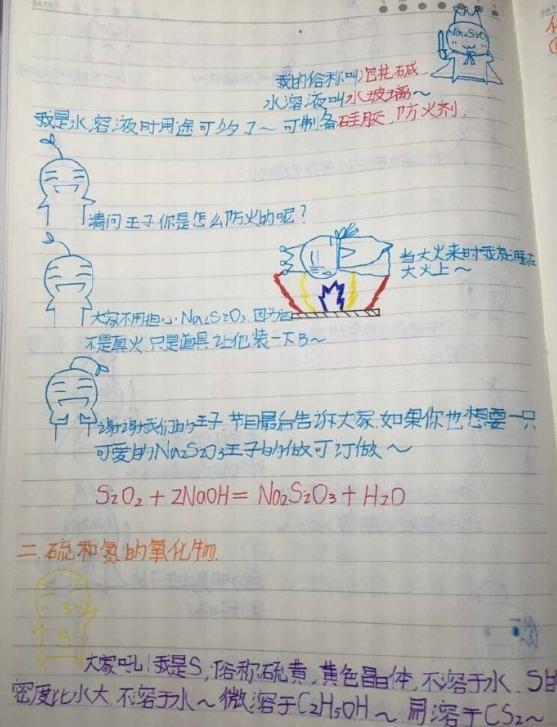 Na2SzO3
我的俗称叫泡花碱
水溶液叫水玻璃~
我是水溶液时用途可多了~ 可制备硅胶,防火剂.
请问王子.你是怎么防火的呢?
当大火来时我就睡在
大火上~
大家不用担心Na2SzO3.因为这
不是真火只是道具让他装一下B~
谢谢我们的王子.节目最后告诉大家.如果你也想要一只
可爱的Na2SzO3王子的做可订做~
SzO2 + 2NaOH = Na2SzO3 + H2O
二.硫和氮的氧化物.
S
大家吼!我是S,俗称硫黄,黄色晶体,不溶于水.S的
密度比水大.不溶于水~微溶于C2H5OH~ 易溶于CS2~